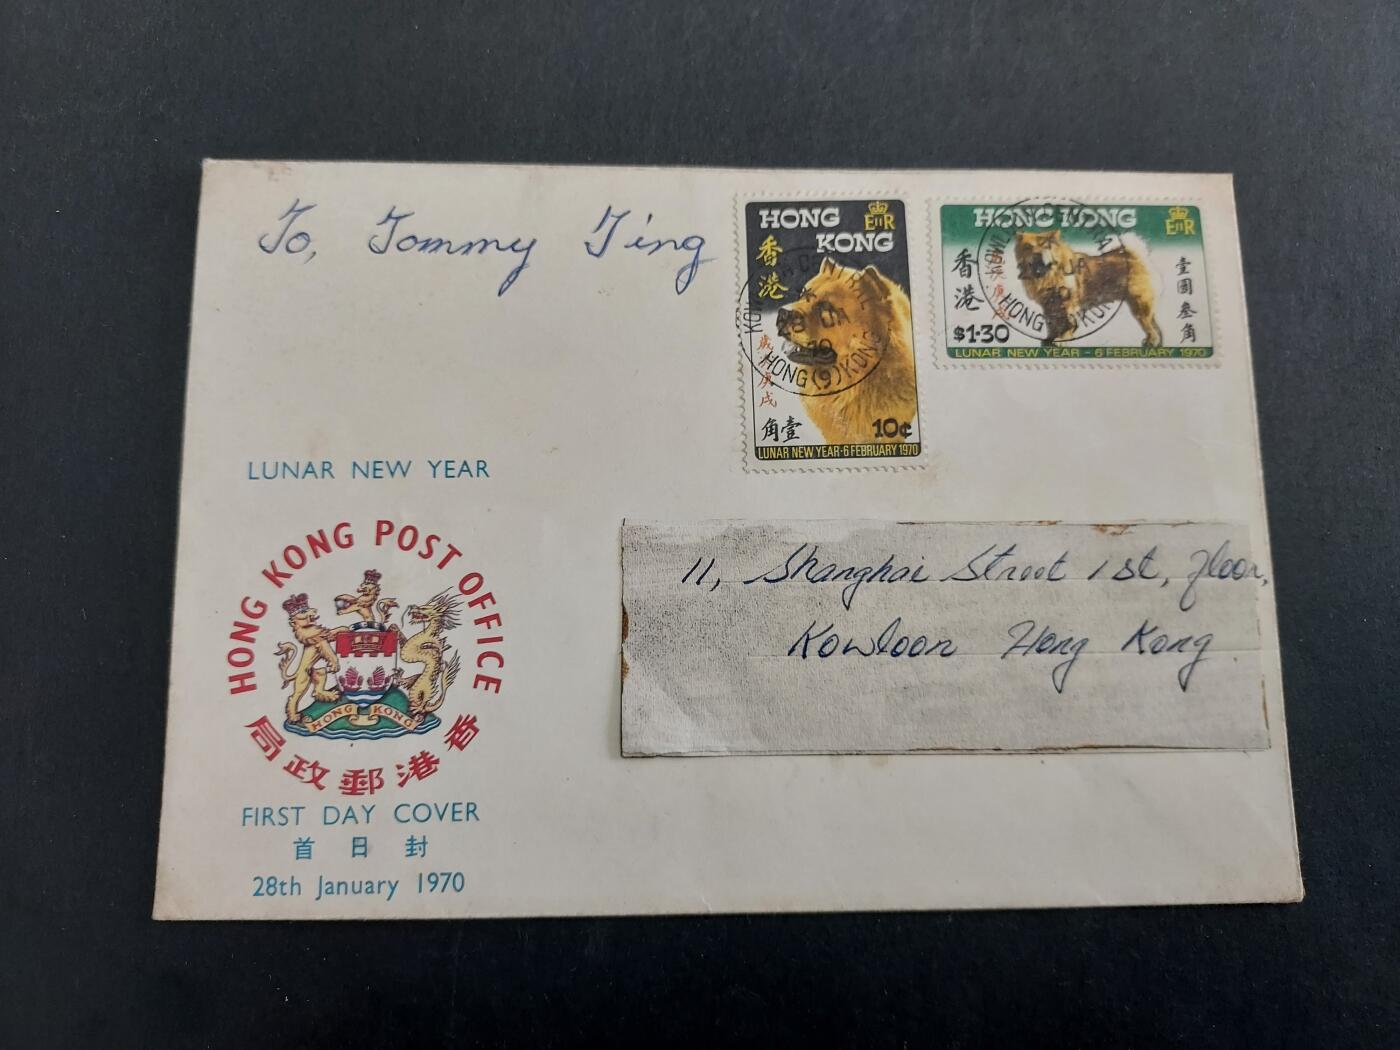 To, Tommy Ting
HONG
KONG
EIIR
香港
歲
庚戌
角壹
10¢
LUNAR NEW YEAR·6 FEBRUARY 1970
HONG KONG
EIIR
香港
$1·30
壹圓叁角
LUNAR NEW YEAR - 6 FEBRUARY 1970
KOWLOON CENTRAL
28 JA
70
HONG (9) KONG
28 JA
70
HONG (9) KONG
LUNAR NEW YEAR
HONG KONG POST OFFICE
HONG KONG
局政郵港香
FIRST DAY COVER
首日封
28th January 1970
11, Shanghai Street 1st, floor,
Kowloon Hong Kong